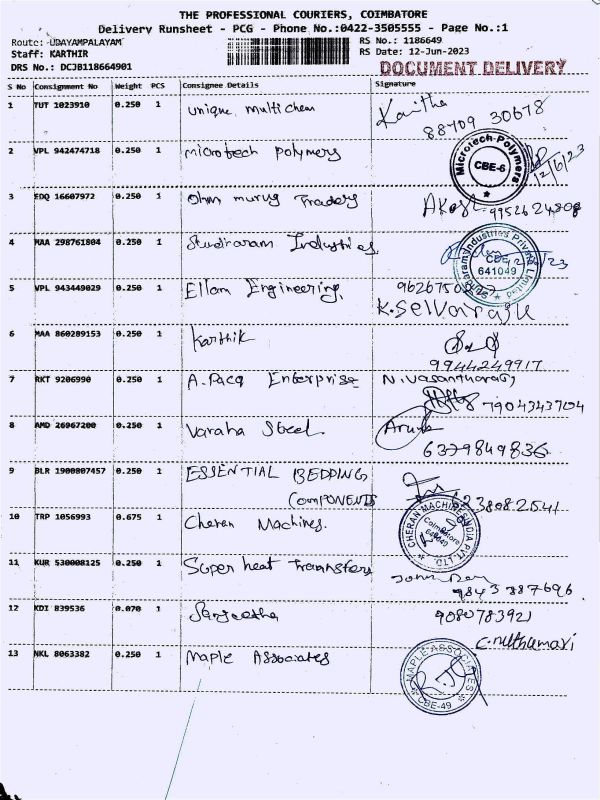 THE PROFESSIONAL COURIERS, COIMBATORE
Delivery Runsheet - PCG - Phone No.:0422-3505555 - Page No.:1
Route: UDAYAMPALAYAM
RS No.: 1186649
Staff: KARTHIR
RS Date: 12-Jun-2023
DRS No.: DCJB118664901
DOCUMENT DELIVERY
S No Consignment No Weight PCS Consignee Details Signature
1 TUT 1023910 0.250 1 unique multichem Kavitha
88709 30678
2 VPL 942474718 0.250 1 microtech polymers Microtech Polymers CBE-6 12/6/23
3 EDQ 16607972 0.250 1 Ohm murug Traders 9952624808
4 MAA 298761804 0.250 1 Industries Industries Private Limited CBE 641049
5 VPL 943449029 0.250 1 Ellam Engineering
K. Selvaraju
6 MAA 860289153 0.250 1 Karthik
9944249917
7 RKT 9206990 0.250 1 Enterprise
7904343704
8 AMD 26967200 0.250 1 Varaha Steel
6379849836
9 BLR 1900807457 0.250 1 ESSENTIAL BEDDING
COMPONENTS
10 TRP 1056993 0.675 1 Cheran Machines. CHERAN MACHINES INDIA PVT. LTD. Coimbatore
11 KUR 530008125 0.250 1 Super heat Transfers
9843387696
12 KDI 839536 0.070 1 Sangeetha 9080783921
13 NKL 8063382 0.250 1 Maple Associates MAPLE ASSOCIATES CBE-49